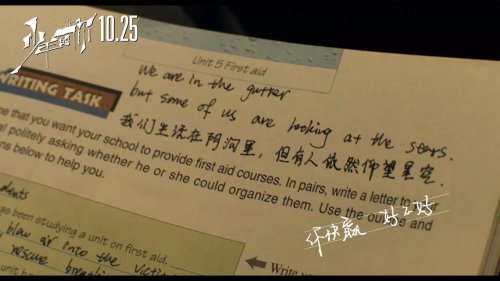 少年的你 10.25
Unit 5 First aid
We are in the gutter
but some of us are looking at the stars.
WRITING TASK
我们生活在阴沟里,但有人依然仰望星空.
ne that you want your school to provide first aid courses. In pairs, write a letter to your
al politely asking whether he or she could organize them. Use the outline and
ns below to help you.
dents
as been studying a unit on first aid.
blow air into the
rescue
Write